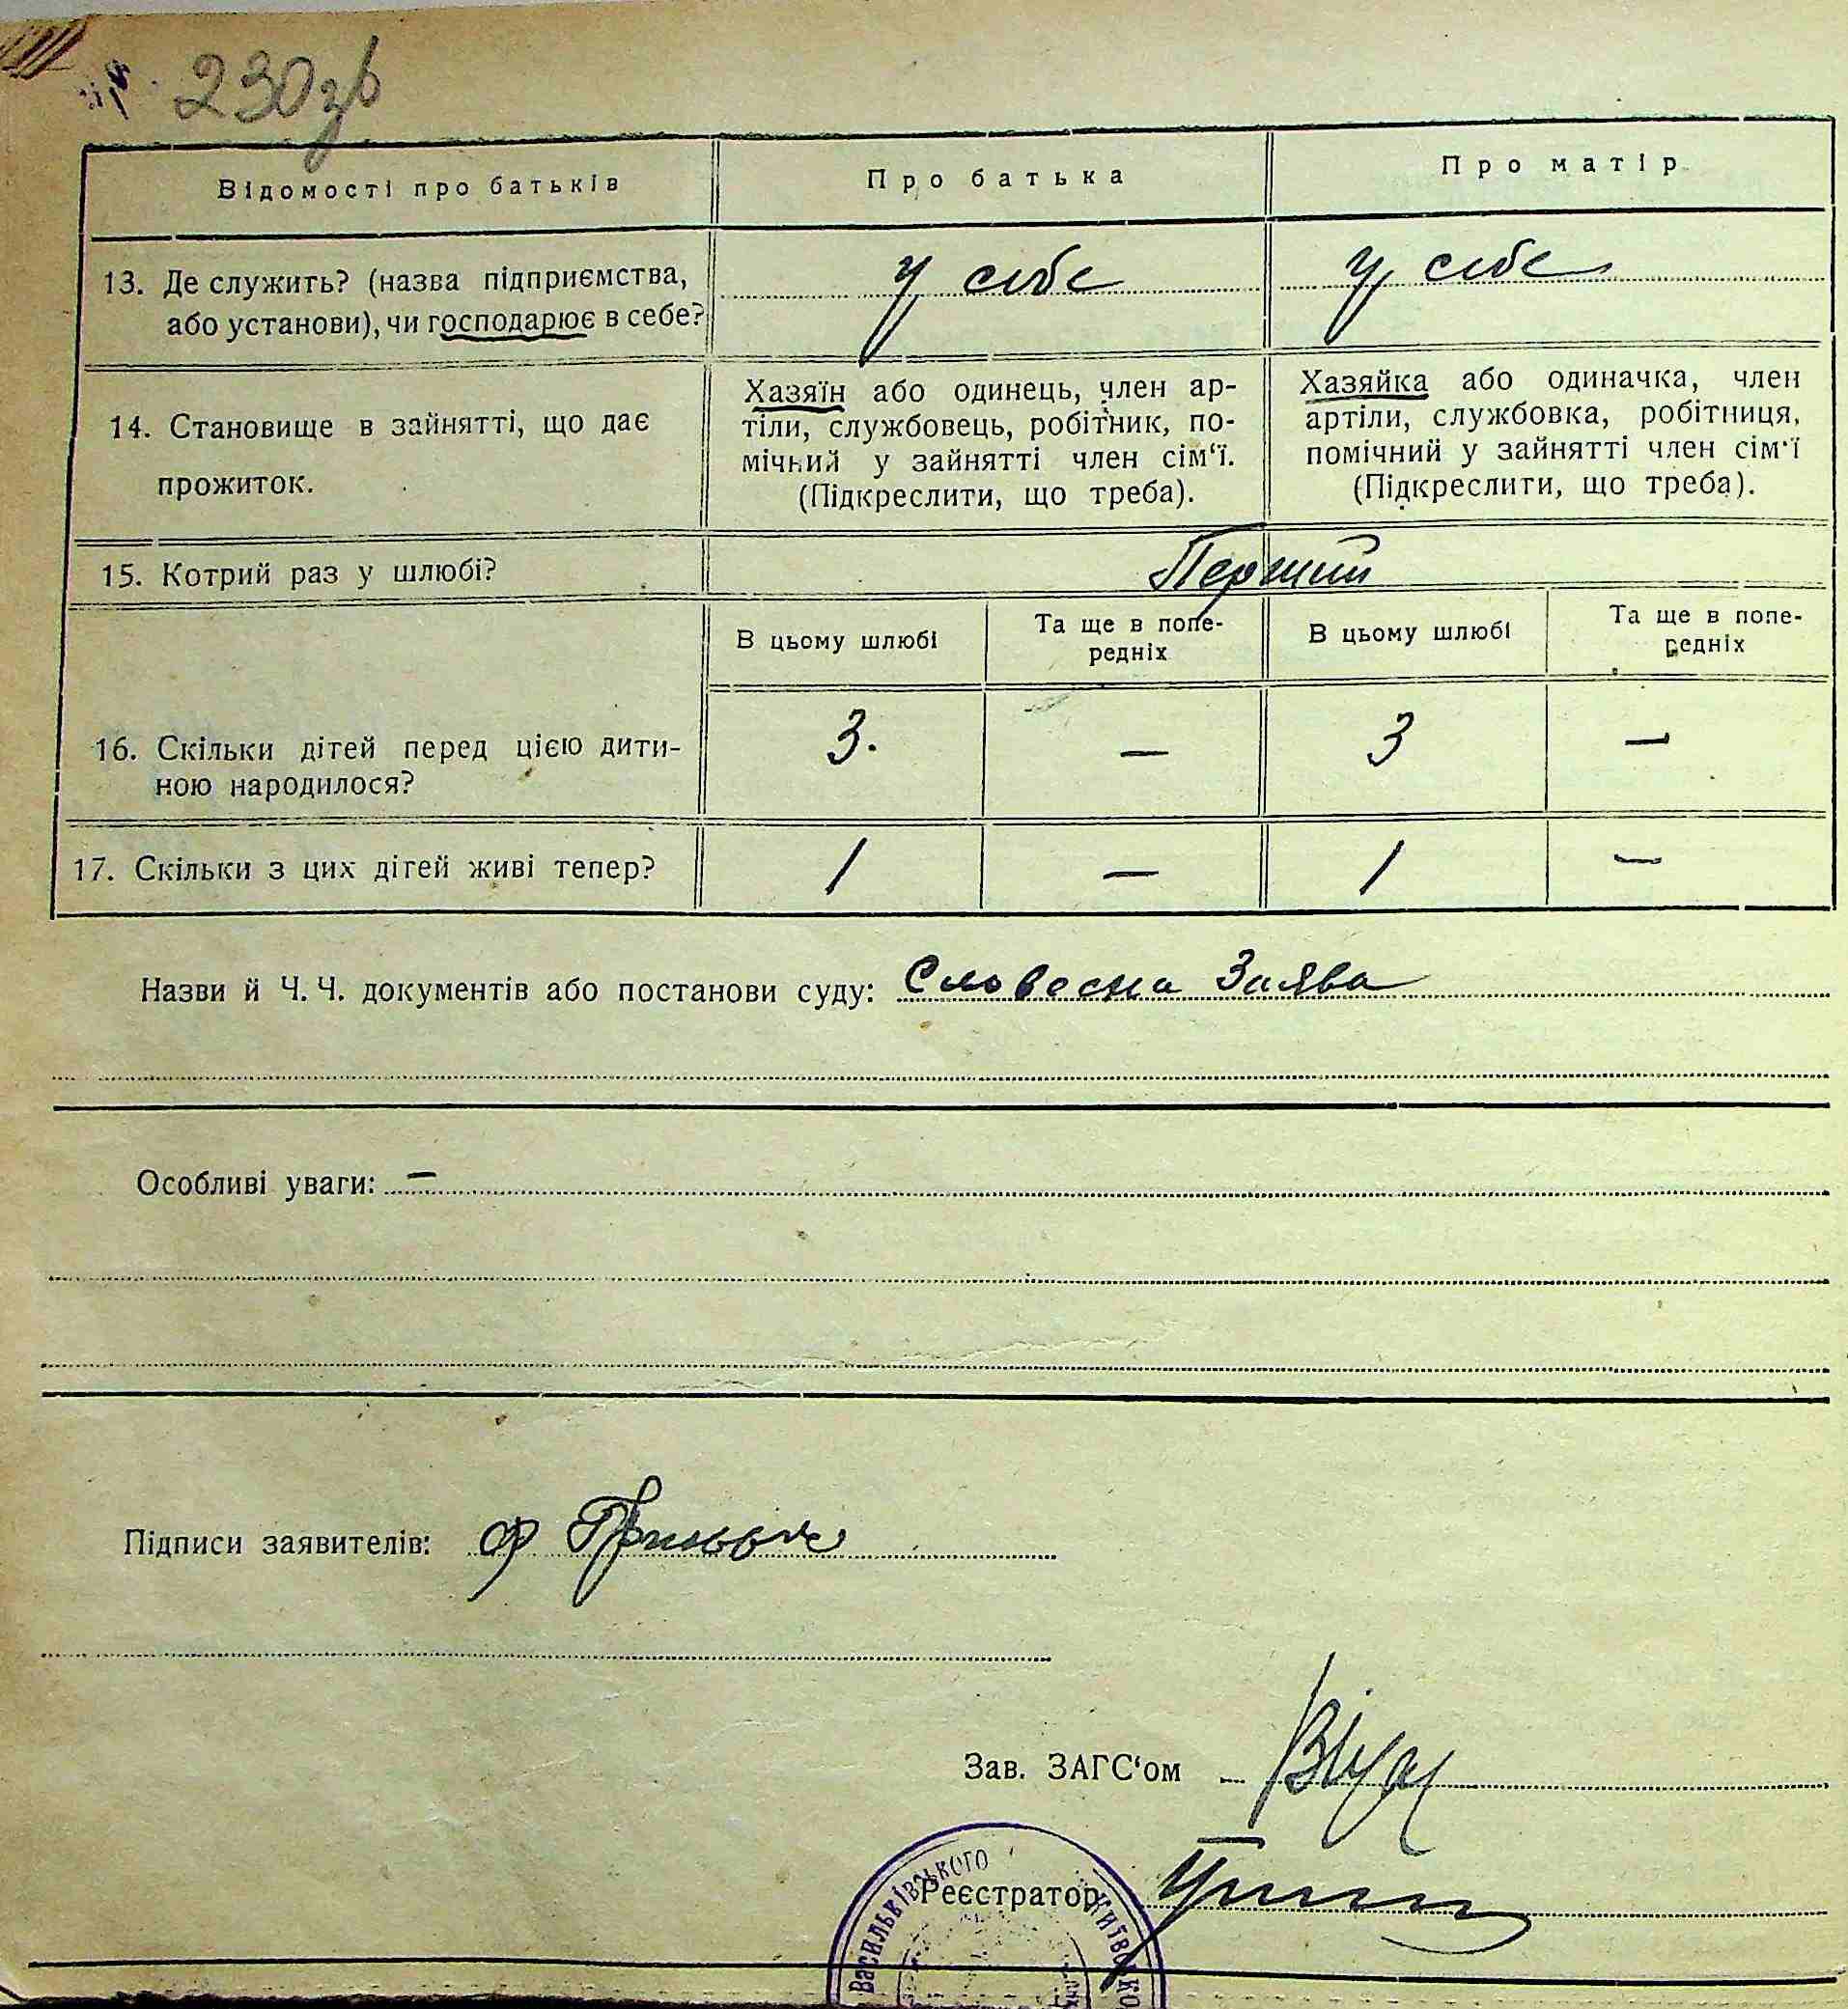 230 зв
Відомості про батьків
Про батька
Про матір
13. Де служить? (назва підприємства,
або установи), чи господарює в себе?
у себе
у себе
14. Становище в зайнятті, що дає
прожиток.
Хазяїн або одинець, член ар-
тіли, службовець, робітник, по-
мічний у зайнятті член сім‘ї.
(Підкреслити, що треба).
Хазяйка або одиначка, член
артіли, службовка, робітниця,
помічний у зайнятті член сім‘ї
(Підкреслити, що треба).
15. Котрий раз у шлюбі?
Перший
В цьому шлюбі
Та ще в попе-
редніх
В цьому шлюбі
Та ще в попе-
редніх
16. Скільки дітей перед цією дити-
ною народилося?
3.
—
3
—
17. Скільки з цих дітей живі тепер?
1
—
1
—
Назви й Ч. Ч. документів або постанови суду: Словесна Заява
Особливі уваги: —
Підписи заявителів: Ф
Зав. ЗАГС‘ом
Реєстратор
Васильківського